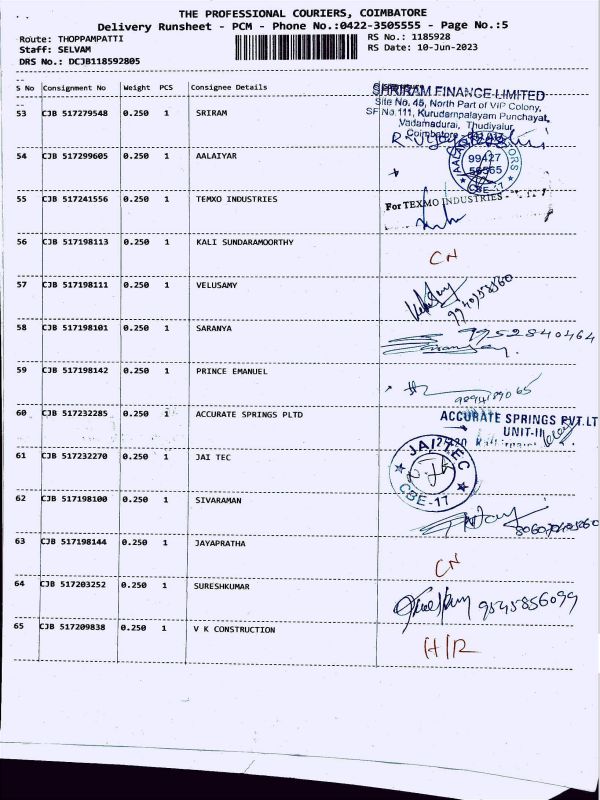 THE PROFESSIONAL COURIERS, COIMBATORE
Delivery Runsheet - PCM - Phone No.:0422-3505555 - Page No.:5
Route: THOPPAMPATTI
Staff: SELVAM
DRS No.: DCJB118592805
RS No.: 1185928
RS Date: 10-Jun-2023
S No Consignment No Weight PCS Consignee Details
53 CJB 517279548 0.250 1 SRIRAM
SHRIRAM FINANCE LIMITED
Site No. 45, North Part of VIP Colony,
SF No.111, Kurudampalayam Punchayat,
Vadamadurai, Thudiyalur,
Coimbatore
54 CJB 517299605 0.250 1 AALAIYAR
99427
CBE-17
55 CJB 517241556 0.250 1 TEMXO INDUSTRIES
For TEXMO INDUSTRIES
56 CJB 517198113 0.250 1 KALI SUNDARAMOORTHY
CN
57 CJB 517198111 0.250 1 VELUSAMY
58 CJB 517198101 0.250 1 SARANYA
9952840464
59 CJB 517198142 0.250 1 PRINCE EMANUEL
60 CJB 517232285 0.250 1 ACCURATE SPRINGS PLTD
ACCURATE SPRINGS PVT.LT
UNIT-II
61 CJB 517232270 0.250 1 JAI TEC
JAI TEC
CBE-17
62 CJB 517198100 0.250 1 SIVARAMAN
63 CJB 517198144 0.250 1 JAYAPRATHA
CN
64 CJB 517203252 0.250 1 SURESHKUMAR
9545856099
65 CJB 517209838 0.250 1 V K CONSTRUCTION
H/R